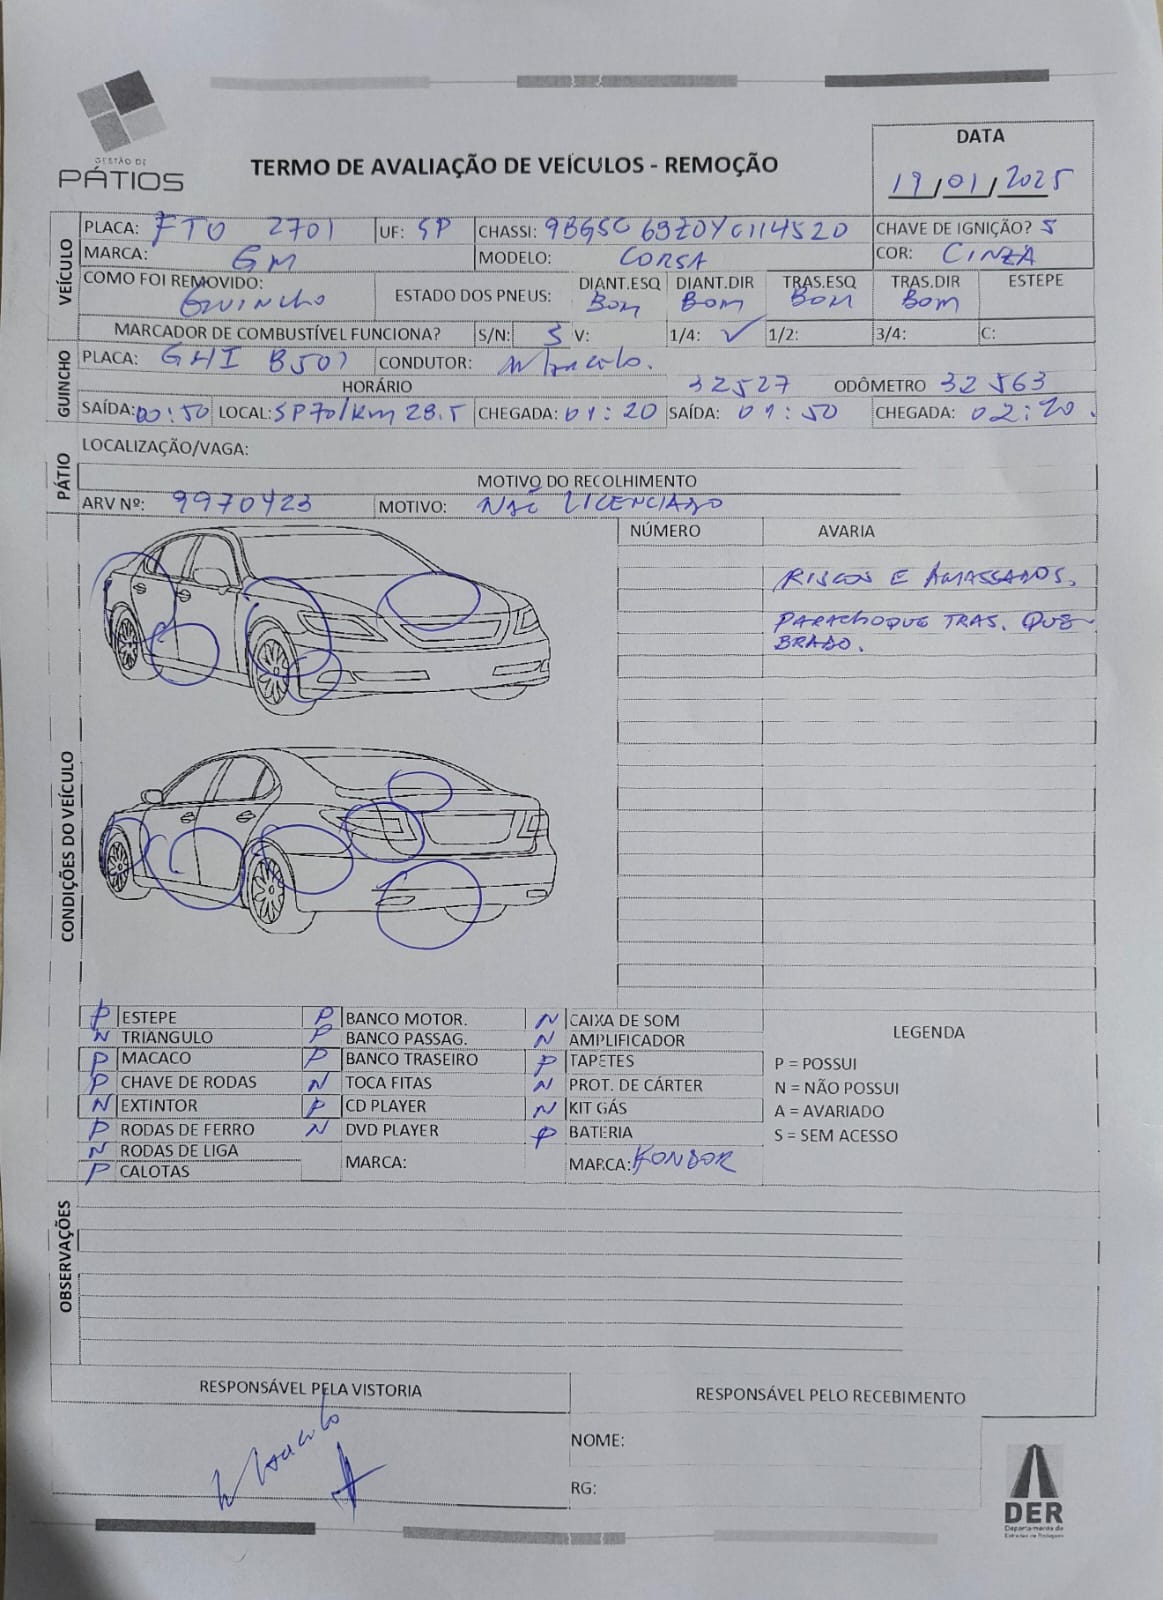 GESTÃO DE
PÁTIOS
TERMO DE AVALIAÇÃO DE VEÍCULOS - REMOÇÃO
DATA
19/01/2025
VEÍCULO
PLACA: FTO 2701 UF: SP CHASSI: 9BGSC68Z0YC114520 CHAVE DE IGNIÇÃO? S
MARCA: GM MODELO: CORSA COR: CINZA
COMO FOI REMOVIDO: GUINCHO ESTADO DOS PNEUS: DIANT.ESQ BOM DIANT.DIR BOM TRAS.ESQ BOM TRAS.DIR BOM ESTEPE
MARCADOR DE COMBUSTÍVEL FUNCIONA? S/N: S V: 1/4: ✓ 1/2: 3/4: C:
GUINCHO
PLACA: GHI 8501 CONDUTOR:
HORÁRIO 32527 ODÔMETRO 32563
SAÍDA: 00:50 LOCAL: SP70/Km 28.5 CHEGADA: 01:20 SAÍDA: 01:50 CHEGADA: 02:20.
PÁTIO
LOCALIZAÇÃO/VAGA:
MOTIVO DO RECOLHIMENTO
ARV Nº: 9970423 MOTIVO: NÃO LICENCIADO
CONDIÇÕES DO VEÍCULO
NÚMERO AVARIA
RISCOS E AMASSADOS.
PARACHOQUE TRAS. QUE-
BRADO.
P ESTEPE P BANCO MOTOR. N CAIXA DE SOM
N TRIANGULO P BANCO PASSAG. N AMPLIFICADOR
P MACACO P BANCO TRASEIRO P TAPETES
P CHAVE DE RODAS N TOCA FITAS N PROT. DE CÁRTER
N EXTINTOR P CD PLAYER N KIT GÁS
P RODAS DE FERRO N DVD PLAYER P BATERIA
N RODAS DE LIGA MARCA: MARCA: KONDOR
P CALOTAS
LEGENDA
P = POSSUI
N = NÃO POSSUI
A = AVARIADO
S = SEM ACESSO
OBSERVAÇÕES
RESPONSÁVEL PELA VISTORIA
RESPONSÁVEL PELO RECEBIMENTO
NOME:
RG:
DER
Departamento de
Estradas de Rodagem